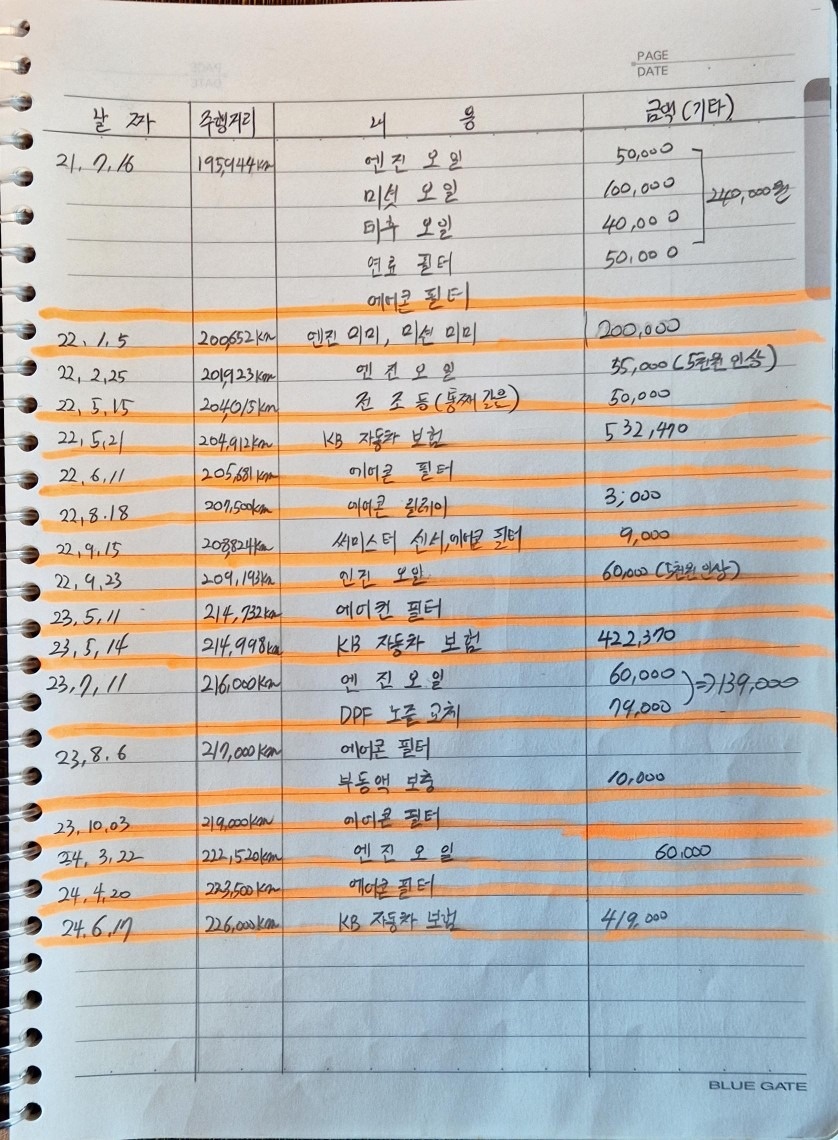 PAGE
DATE
날짜 주행거리 내용 금액(기타)
21.7.16 195,944km 엔진 오일 50,000
미션 오일 100,000 240,000원
데후 오일 40,000
연료 필터 50,000
에어콘 필터
22.1.5 200,652km 엔진 미미, 미션 미미 200,000
22.2.25 201,923km 엔진 오일 55,000(5천원 인상)
22.5.15 204,015km 전조등(통째 갈음) 50,000
22.5.21 204,912km KB 자동차 보험 532,470
22.6.11 205,681km 에어콘 필터
22.8.18 207,500km 에어콘 릴레이 3,000
22.9.15 208,824km 써미스터 센서,에어콘 필터 9,000
22.9.23 209,193km 엔진 오일 60,000(5천원 인상)
23.5.11 214,732km 에어컨 필터
23.5.14 214,998km KB 자동차 보험 422,370
23.7.11 216,000km 엔진 오일 60,000 ⇒139,000
DPF 노즐 교체 79,000
23.8.6 217,000km 에어콘 필터
부동액 보충 10,000
23.10.03 219,000km 에어콘 필터
24.3.22 222,520km 엔진 오일 60,000
24.4.20 223,500km 에어콘 필터
24.6.17 226,000km KB 자동차 보험 419,000
BLUE GATE